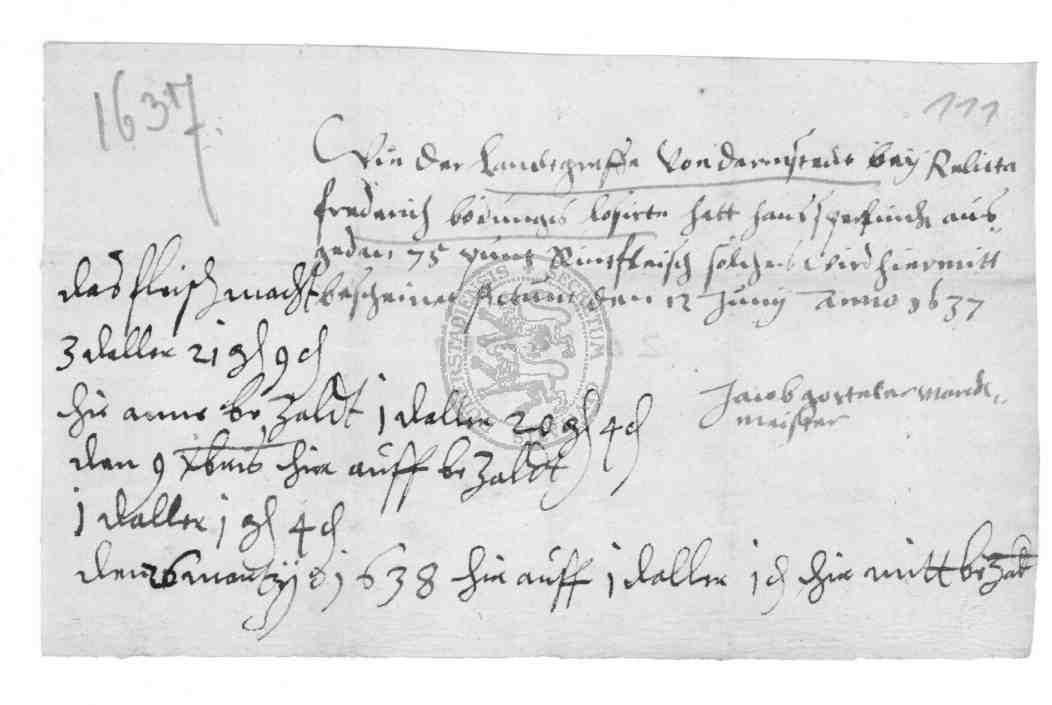 1637.
111
Wie der Landtgraffe Von dermstedt bey Relicta
frederich bödungs losirte hatt hans aus
geden 75 punt Rintfleisch solches Wird hiermitt
bescheinet Actum den 12 Junij Anno 1637
Jacob Marck
meister
das fleisch macht
3 daller 21 gl 9 d
hir anne bezaldt 1 daller 20 gl 4 d
den 9 Xbris hir auff bezaldt
1 daller 1 gl 4 d
den 26 martzij 1638 hir auff 1 daller 1 d hir mitt bezalt